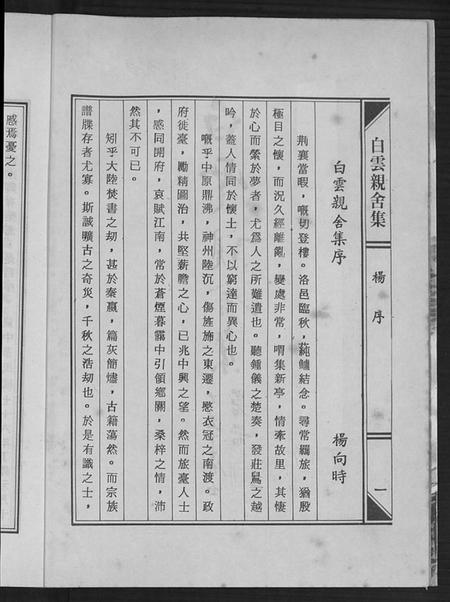 白雲親舍集
楊序
一
白雲親舍集序
楊向時
荆襄當暇，嘅切登樓。洛邑臨秋，蒓鱸結念。尋常羈旅，猶殷
極目之懷，而況久經離亂，變處非常，喟集新亭，情牽故里，其悽
於心而縈於夢者，尤為人之所難遣也。聽鍾儀之楚奏，發莊舄之越
吟，蓋人情同於懷土，不以窮達而異心也。
嘅乎中原鼎沸，神州陸沉，傷旌旆之東遷，愍衣冠之南渡。政
府徙臺，勵精圖治，共堅薪膽之心，已兆中興之望。然而旅臺人士
，感同開府，哀賦江南，常於蒼煙暮靄中引領鄉關，桑梓之情，沛
然其不可已。
矧乎大陸焚書之劫，甚於秦嬴，篇灰簡燼，古籍蕩然。而宗族
譜牒存者尤寡。斯誠曠古之奇災，千秋之浩劫也。於是有識之士，
慼焉憂之。